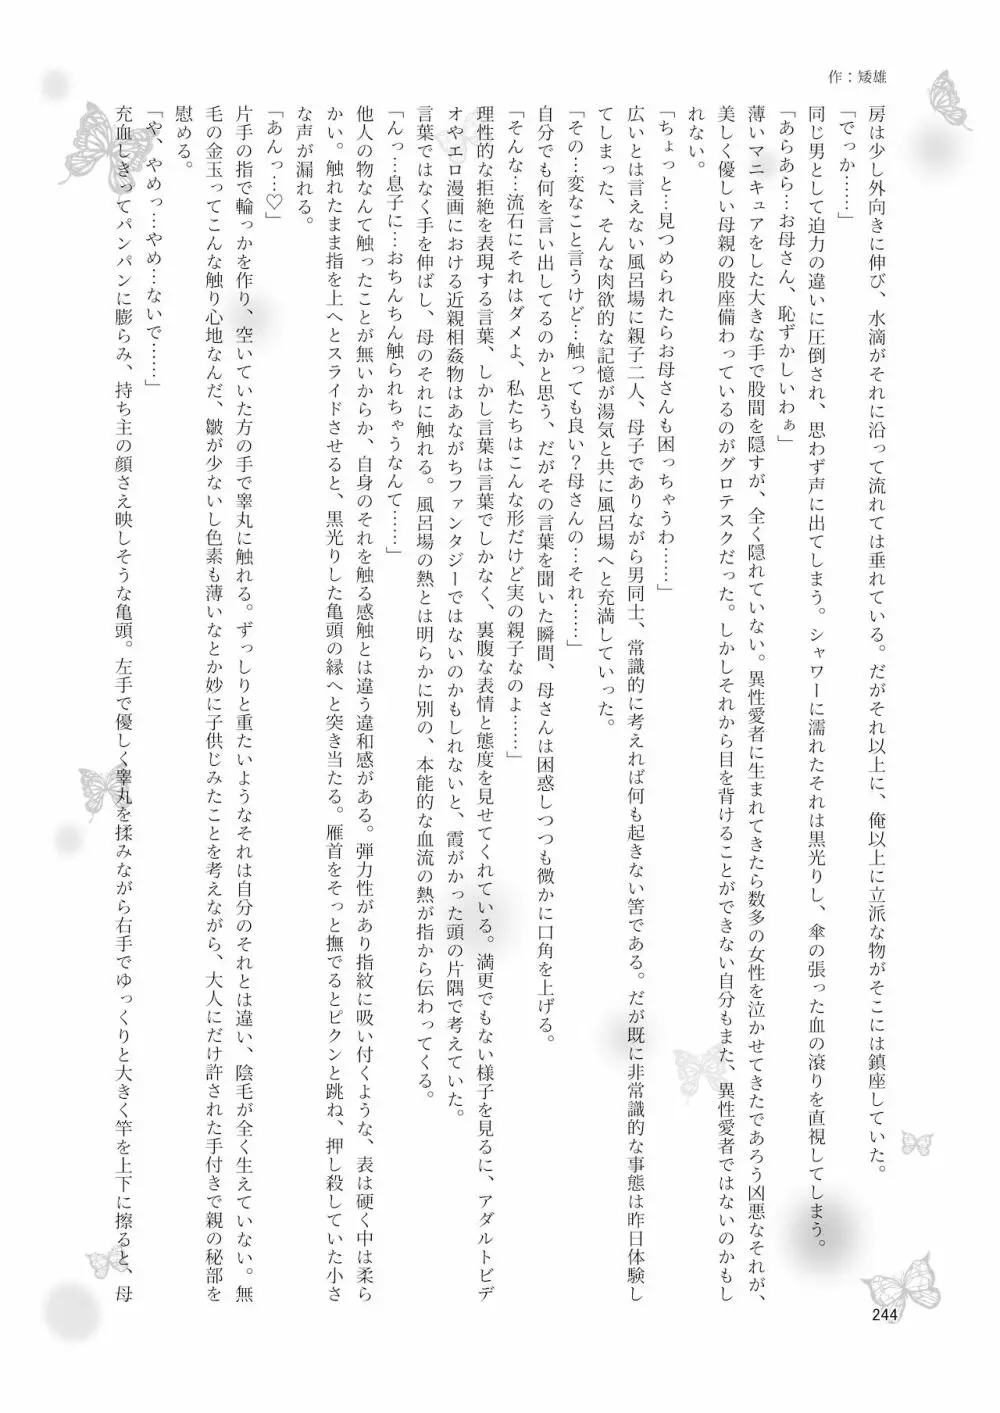 作：矮雄
房は少し外向きに伸び、水滴がそれに沿って流れては垂れている。だがそれ以上に、俺以上に立派な物がそこには鎮座していた。
「でっか……」
同じ男として迫力の違いに圧倒され、思わず声に出てしまう。シャワーに濡れたそれは黒光りし、傘の張った血の滾りを直視してしまう。
「あらあら…お母さん、恥ずかしいわぁ」
薄いマニキュアをした大きな手で股間を隠すが、全く隠れていない。異性愛者に生まれてきたら数多の女性を泣かせてきたであろう凶悪なそれが、
美しく優しい母親の股座備わっているのがグロテスクだった。しかしそれから目を背けることができない自分もまた、異性愛者ではないのかもし
れない。
「ちょっと…見つめられたらお母さんも困っちゃうわ……」
広いとは言えない風呂場に親子二人、母子でありながら男同士、常識的に考えれば何も起きない筈である。だが既に非常識的な事態は昨日体験し
てしまった、そんな肉欲的な記憶が湯気と共に風呂場へと充満していった。
「その…変なこと言うけど…触っても良い？母さんの…それ……」
自分でも何を言い出してるのかと思う、だがその言葉を聞いた瞬間、母さんは困惑しつつも微かに口角を上げる。
「そんな…流石にそれはダメよ、私たちはこんな形だけど実の親子なのよ……」
理性的な拒絶を表現する言葉、しかし言葉は言葉でしかなく、裏腹な表情と態度を見せてくれている。満更でもない様子を見るに、アダルトビデ
オやエロ漫画における近親相姦物はあながちファンタジーではないのかもしれないと、霞がかった頭の片隅で考えていた。
言葉ではなく手を伸ばし、母のそれに触れる。風呂場の熱とは明らかに別の、本能的な血流の熱が指から伝わってくる。
「んっ…息子に…おちんちん触られちゃうなんて……」
他人の物なんて触ったことが無いからか、自身のそれを触る感触とは違う違和感がある。弾力性があり指紋に吸い付くような、表は硬く中は柔ら
かい。触れたまま指を上へとスライドさせると、黒光りした亀頭の縁へと突き当たる。雁首をそっと撫でるとピクンと跳ね、押し殺していた小さ
な声が漏れる。
「あんっ…♡」
片手の指で輪っかを作り、空いていた方の手で睾丸に触れる。ずっしりと重たいようなそれは自分のそれとは違い、陰毛が全く生えていない。無
毛の金玉ってこんな触り心地なんだ、皺が少ないし色素も薄いなとか妙に子供じみたことを考えながら、大人にだけ許された手付きで親の秘部を
慰める。
「や、やめっ…やめ…ないで……」
充血しきってパンパンに膨らみ、持ち主の顔さえ映しそうな亀頭。左手で優しく睾丸を揉みながら右手でゆっくりと大きく竿を上下に擦ると、母
244